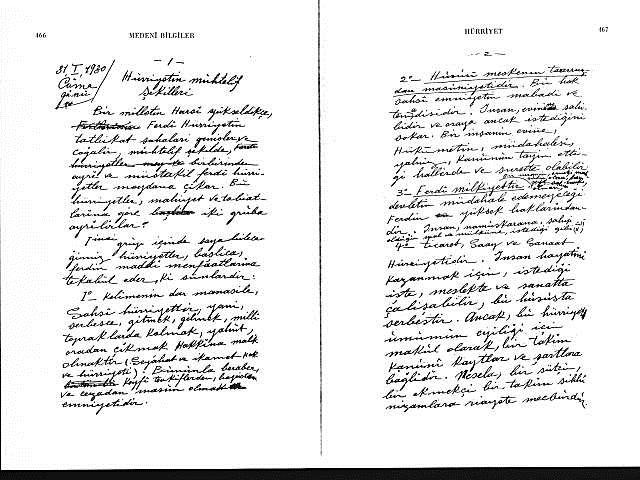 466 MEDENİ BİLGİLER
31 I, 1930
Cuma
günü
— 1 —
Hürriyetin muhtelif
Şekilleri
Bir milletin Harsi yükseldikçe,
Ferdi Hürriyetin
tatbikat sahaları genişler ve
çoğalır, muhtelif şekilde,
birbirinden
ayrı ve müstakil ferdi hürri-
yetler meydana çıkar. Bu
hürriyetler, mahiyet ve tabiat-
larına göre iki gruba
ayrılırlar.
grup içinde sayabilece-
ğimiz hürriyetler, başlıca,
ferdin maddi menfaatlarına
tekabül eder, ki şunlardır:
1° — Kelimenin dar manasile,
Şahsi hürriyettir, yani,
serbesce, gitmek, gelmek, milli
topraklarda kalmak, yahut,
oradan çıkmak Hakkına malik
olmaktır (Seyahat ve ikamet Hak
ve hürriyeti). Bununla beraber,
keyfi tevkiflerden, hapisten
ve cezadan masun olmak
emniyetidir.
HÜRRİYET 467
— 2 —
2° — Hususi meskenin taarruz-
dan masuniyetidir. Bir hak
şahsi emniyetin mabadi ve
temdididir. İnsan, evinin sahi-
bidir ve oraya ancak istediğini
sokar. Bir insanın evine,
Hükümetin, müdahalesi,
yalnız, kanunun tayin etti-
ği hallerde ve surette olabilir.
3° — Ferdi mülkiyettir
devletin müdahale edemeyeceği
Ferdin yüksek haklarından-
dır. İnsan, namuskârane, sahip
olduğu mal ve mülküne, istediği gibi
4° — ticaret, Saay ve Sanaat
Hürriyetidir. İnsan hayatını
kazanmak için, istediği
işte, meslekte ve sanatta
çalışabilir, bir hususta
serbestir. Ancak, bu hürriyet
umumun eyiliği için
makul olarak, bir takım
kanuni kayıtlar ve şartlara
bağlıdır. Mesela, bir sütçü,
bir ekmekçi bir takım sıhhi
nizamlara riayete mecburdur.